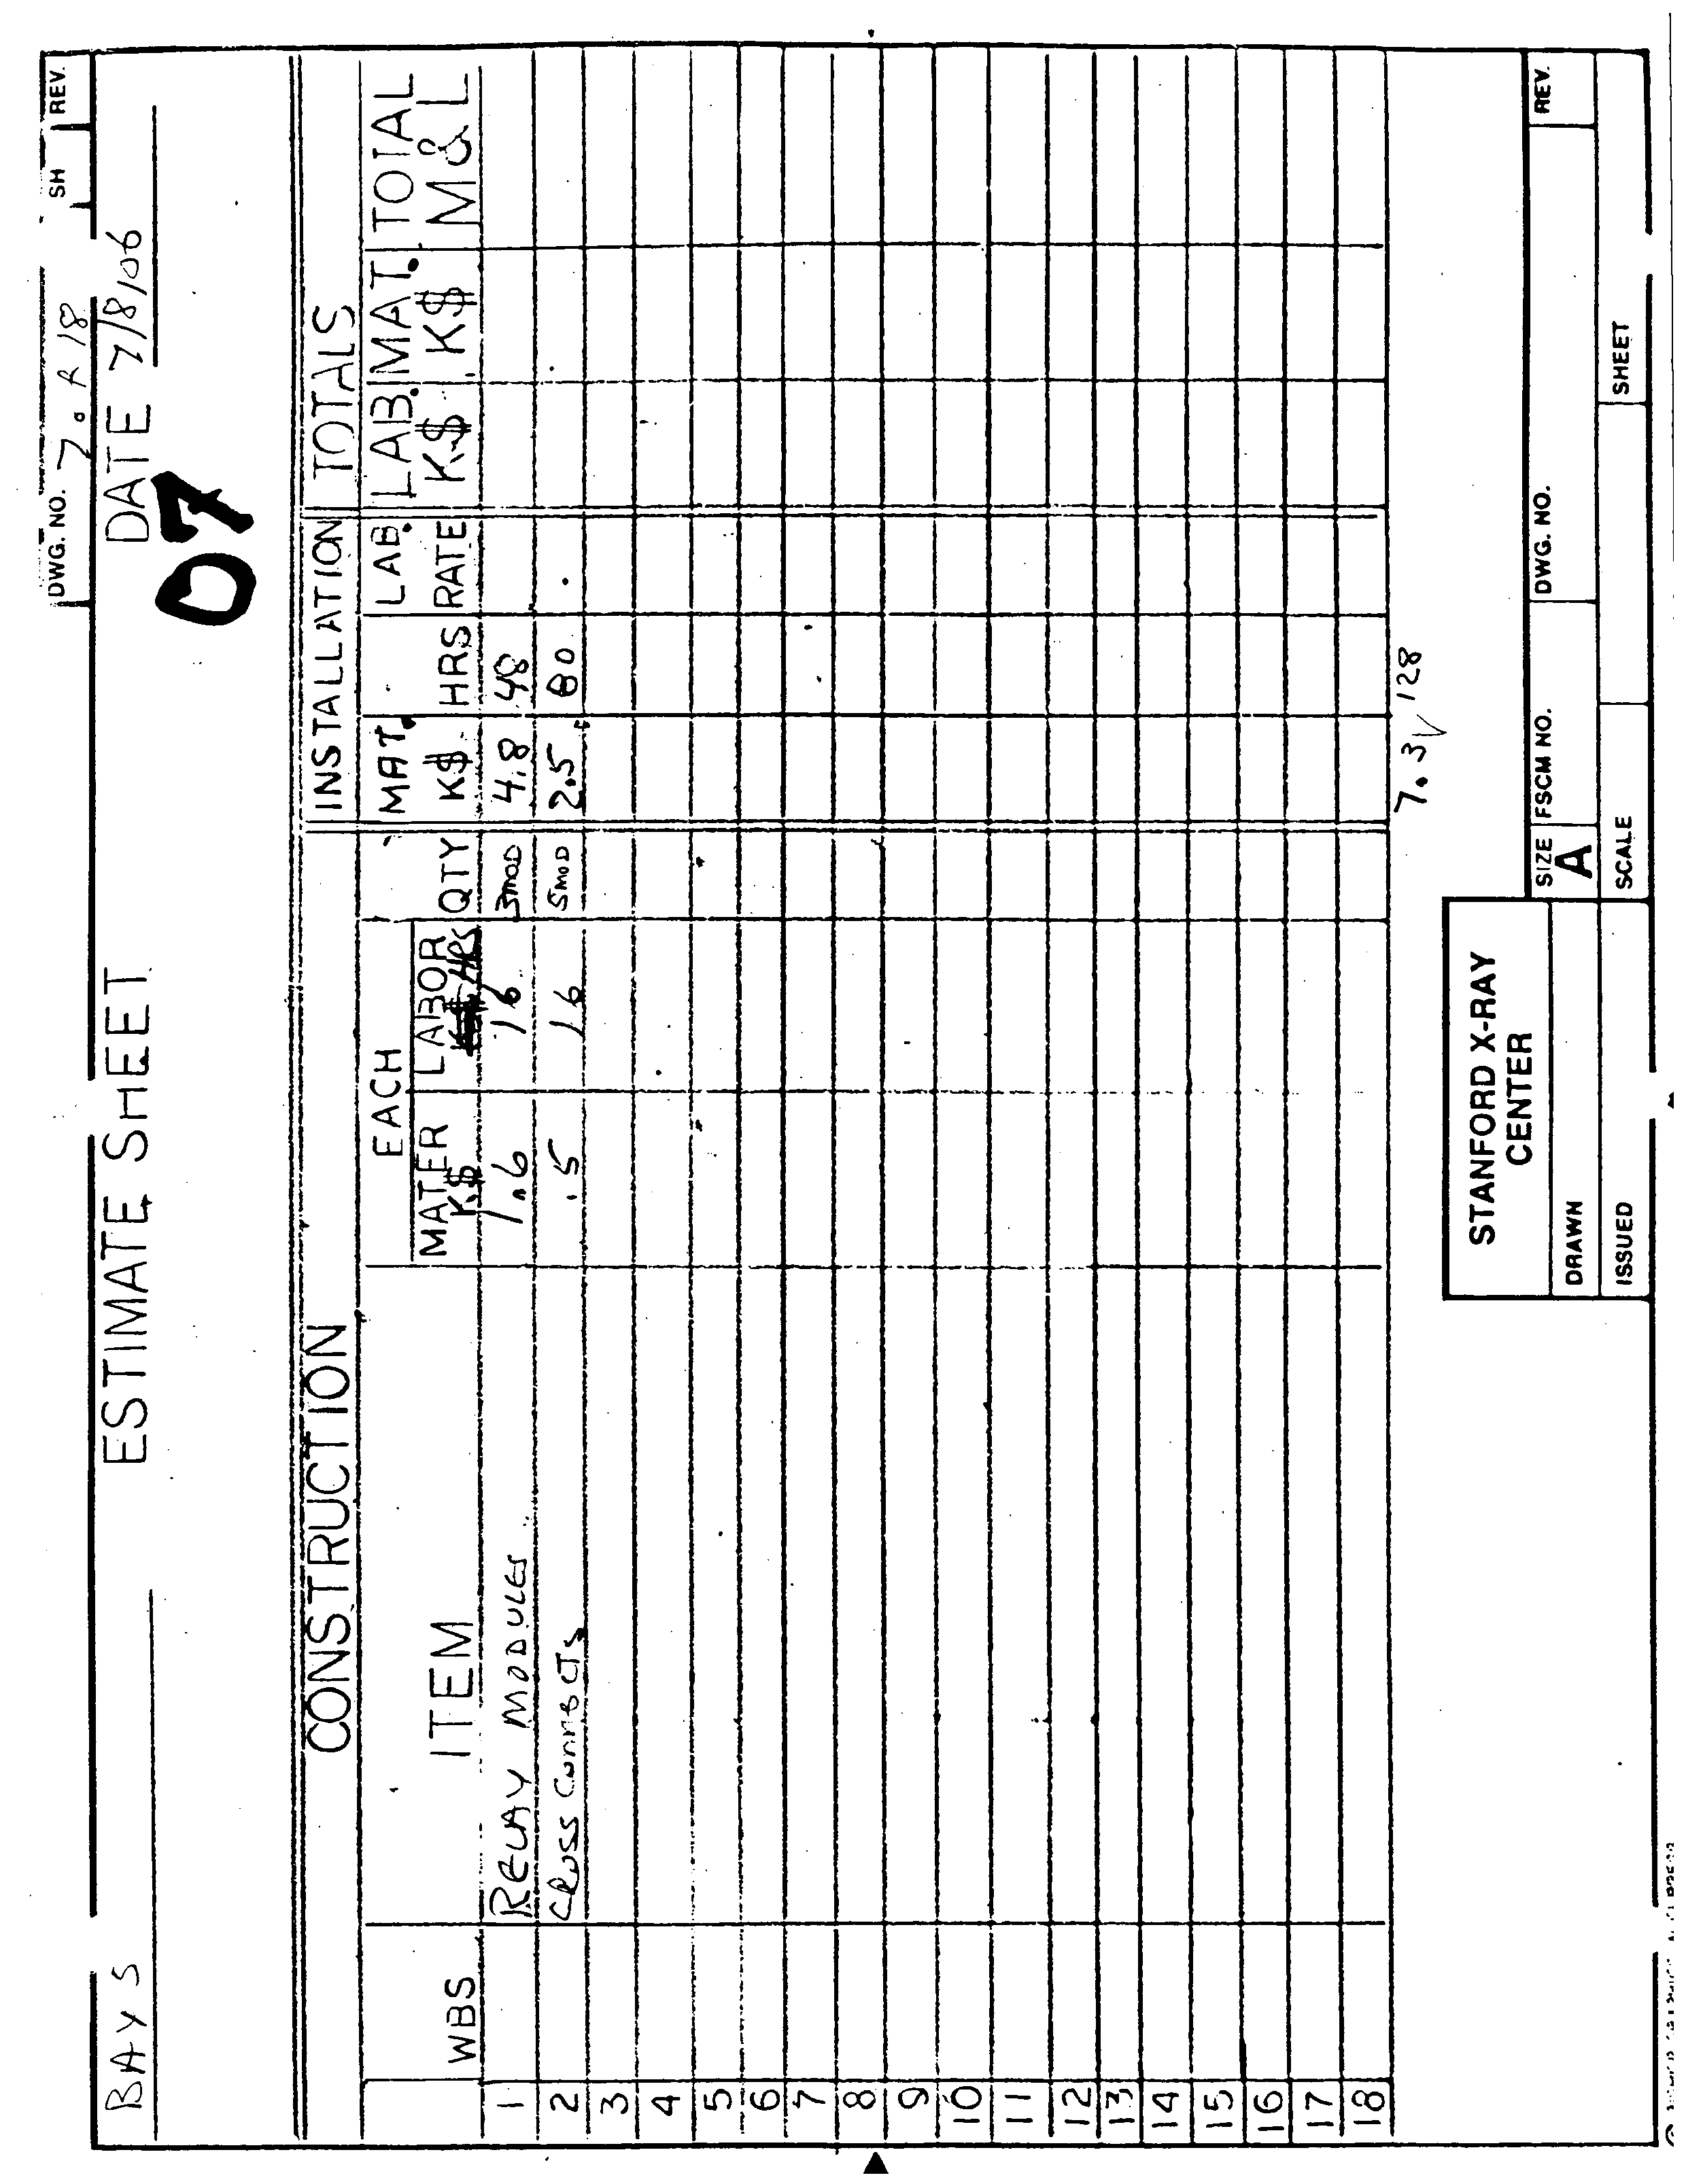 DWG. NO. 7. R 18 SH REV.
BAY 5 ESTIMATE SHEET DATE 7/8/06
07
CONSTRUCTION INSTALLATION TOTALS
EACH MAT. LAB. LAB. MAT. TOTAL
WBS ITEM MATER K$ LABOR HRS QTY K$ HRS RATE K$ K$ M&L
1 RELAY MODULES 1.6 16 3MOD 4.8 48
2 CROSS CONNECTS .5 16 5MOD 2.5 80
3
4
5
6
7
8
9
10
11
12
13
14
15
16
17
18
7.3 128
STANFORD X-RAY
CENTER
SIZE A FSCM NO. DWG. NO. REV.
DRAWN
ISSUED SCALE SHEET